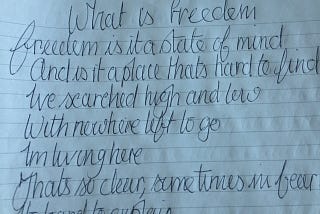 What is freedom
freedom is it a state of mind
And is it a place thats hard to find
Ive searched high and low
With nowhere left to go
Im living here
Thats so clear, sometimes in fear
hard to explain